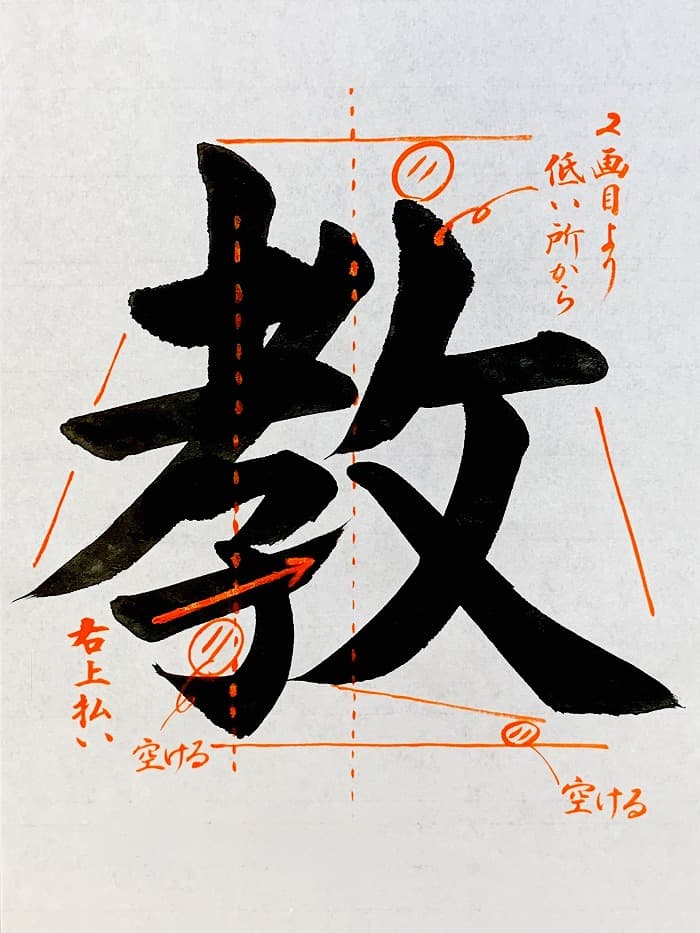 教
2画目より
低い所から
右上払い
空ける
空ける